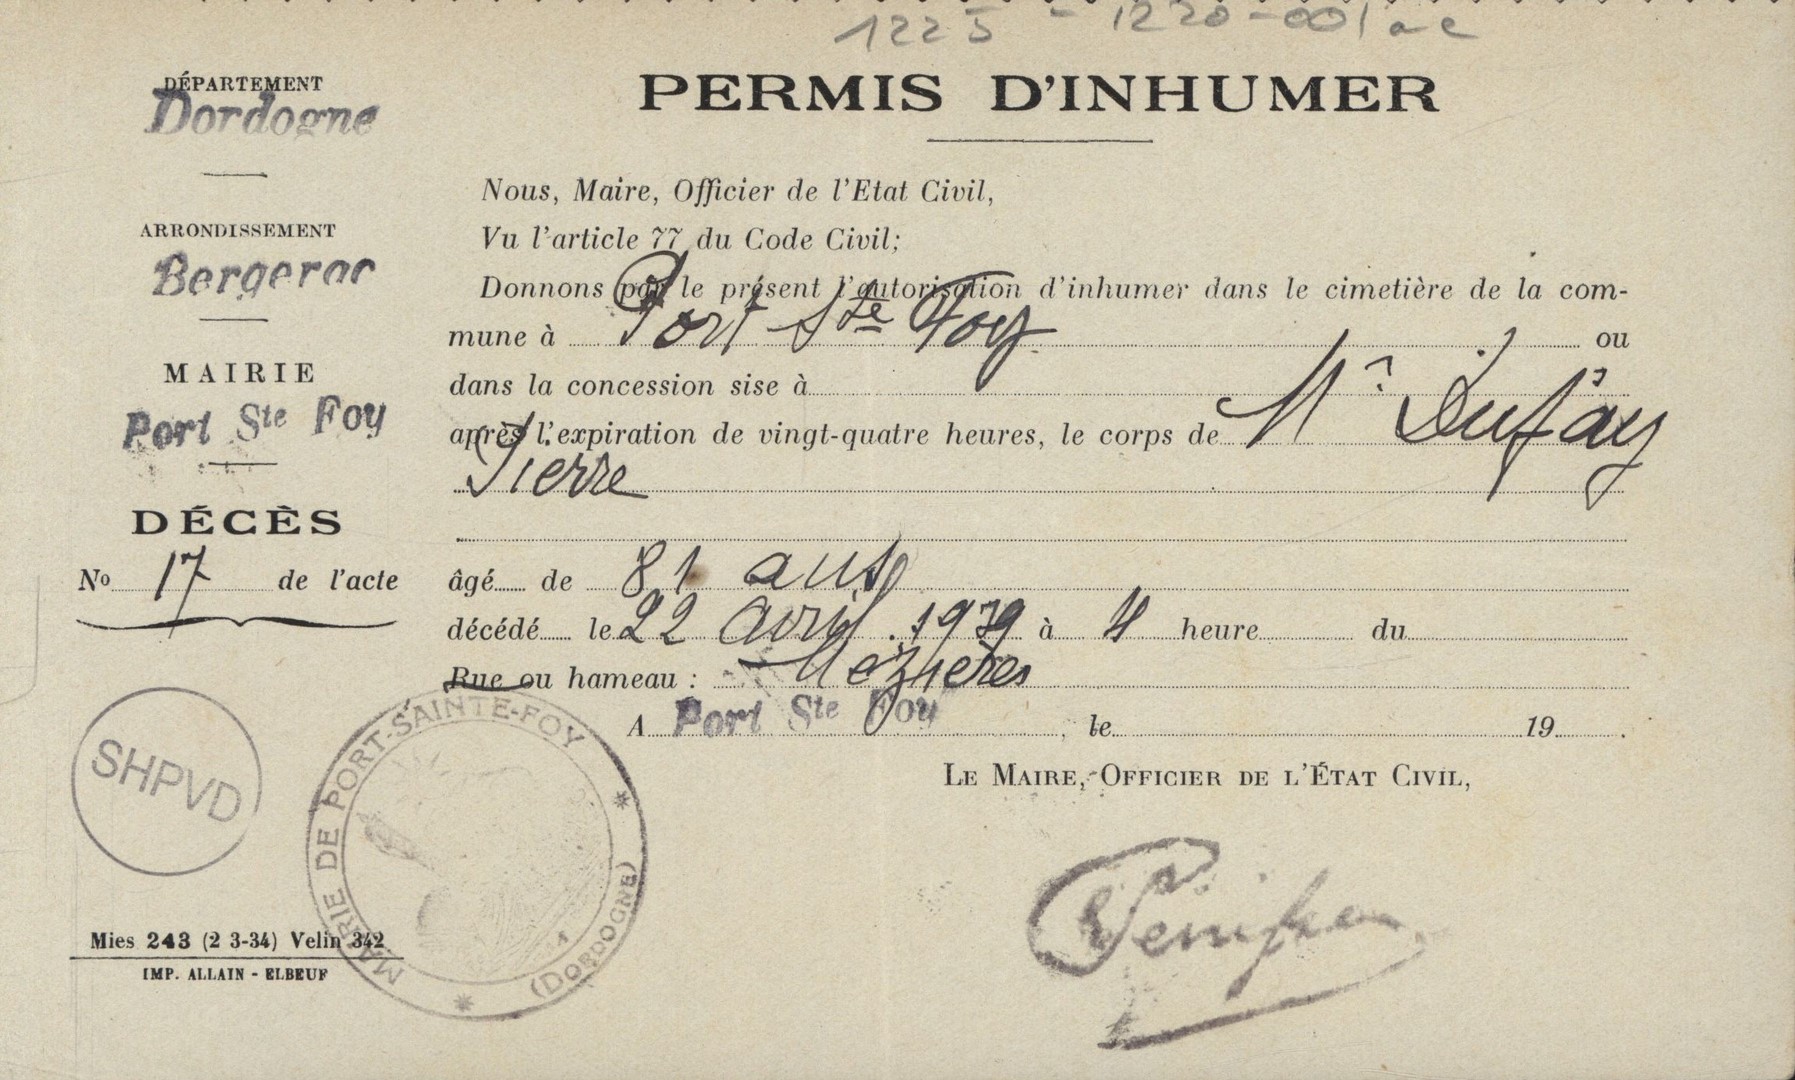 1225 - 1220-001 a e
DÉPARTEMENT
Dordogne
ARRONDISSEMENT
Bergerac
MAIRIE
Port Ste Foy
DÉCÈS
No 17 de l'acte
SHPVD
Mies 243 (2 3-34) Velin 342
IMP. ALLAIN - ELBEUF
PERMIS D'INHUMER
Nous, Maire, Officier de l'Etat Civil,
Vu l'article 77 du Code Civil;
Donnons par le présent l'autorisation d'inhumer dans le cimetière de la com-
mune à Port Ste Foy ou
dans la concession sise à
après l'expiration de vingt-quatre heures, le corps de Mr Dufay
Pierre
âgé de 81 ans
décédé le 22 avril 1939 à 4 heure du
Rue ou hameau : Mézières
A Port Ste Foy, le 19 .
LE MAIRE, OFFICIER DE L'ÉTAT CIVIL,
MAIRIE DE PORT-SAINTE-FOY
(DORDOGNE)